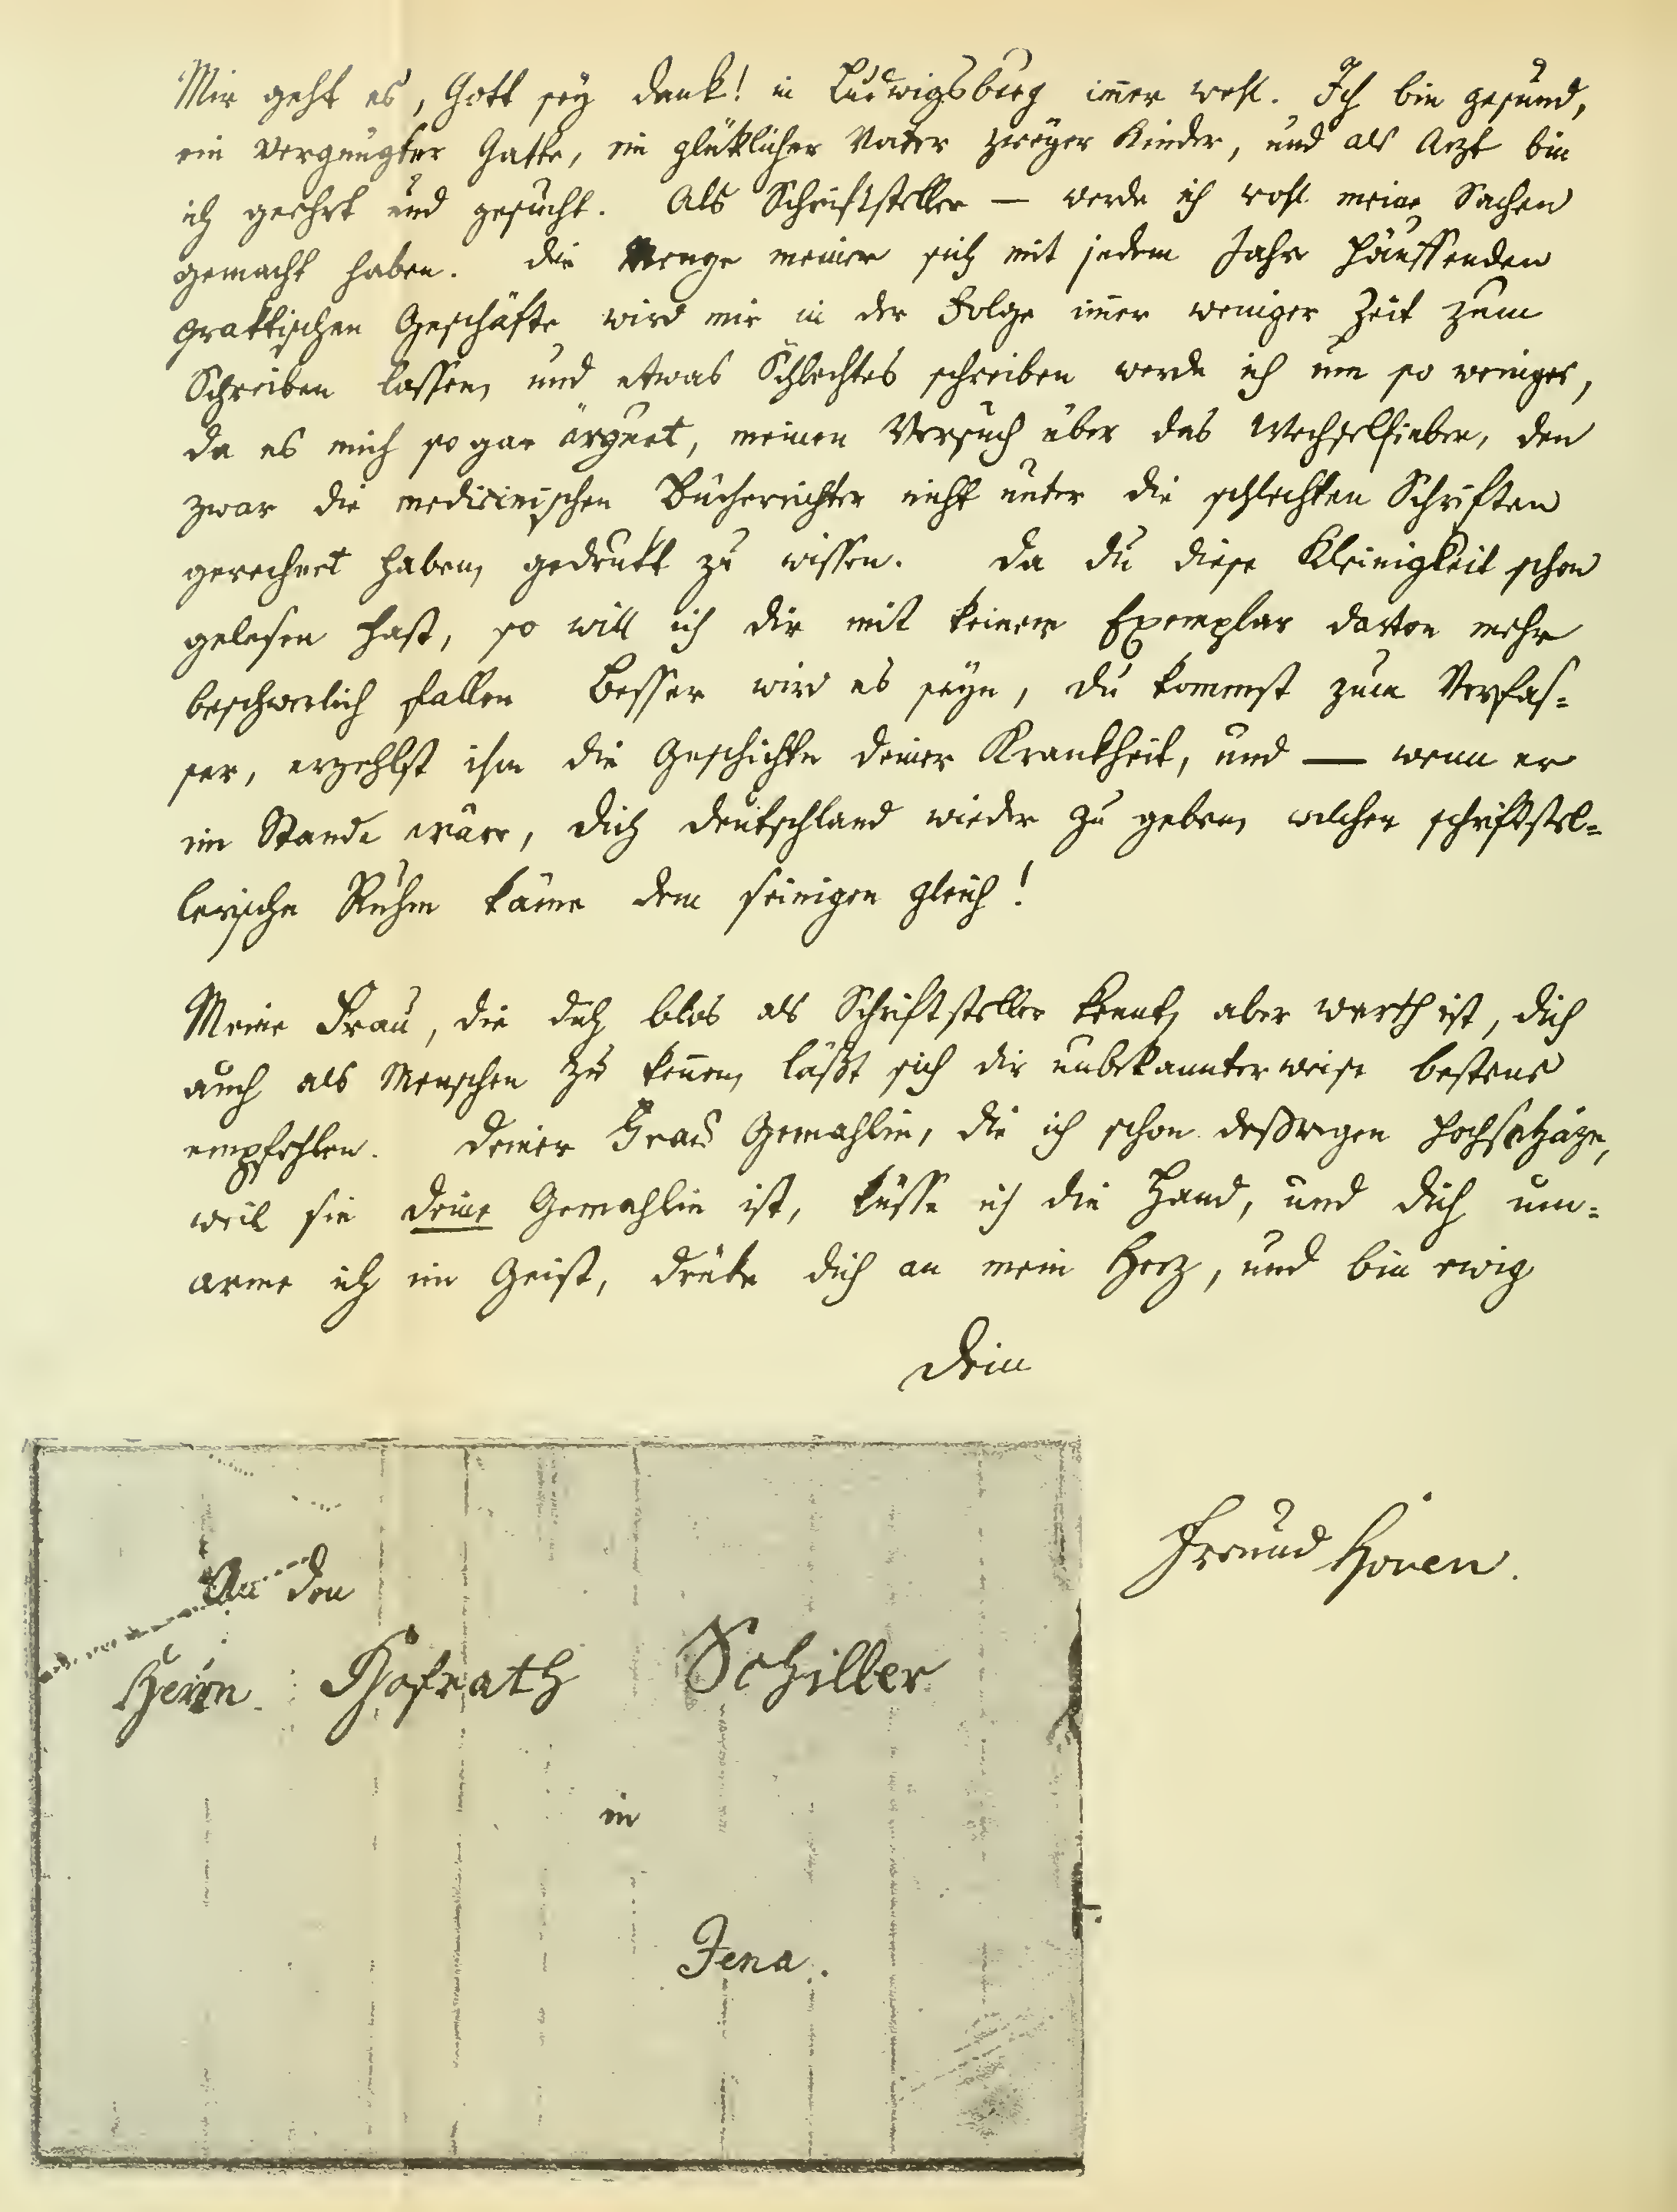 Mir geht es, Gott sey dank! in Ludwigsburg im̄er wohl. Ich bin gesund,
ein vergnügter Gatte, ein glüklicher Vater zweyer Kinder, und als Arzt bin
ich geehrt und gesucht. Als Schriftsteller — werde ich wohl meine Sachen
gemacht haben. Die Menge meiner sich mit jedem Jahr häuffenden
praktischen Geschäfte wird mir in der Folge im̄er weniger Zeit zum
Schreiben lassen, und etwas Schlechtes schreiben werde ich um so weniger,
da es mich sogar ärgert, meinen Versuch über das Wechselfieber, den
zwar die medicinischen Bücherrichter nicht unter die schlechten Schriften
gerechnet haben, gedrukt zu wissen. Da du diese Kleinigkeit schon
gelesen hast, so will ich dir mit keinem Exemplar davon mehr
beschwerlich fallen Besser wird es seyn, du kommst zum Verfas=
ser, erzehlst ihm die Geschichte deiner Krankheit, und — wenn er
im Stande wäre, dich Deutschland wieder zu geben, welcher schriftstel=
lerische Ruhm käme dem seinigen gleich!
Meine Frau, die dich blos als Schriftsteller kennt, aber werth ist, dich
auch als Menschen zu ken̄en, läßt sich dir unbekannterweise bestens
empfehlen. Deiner Frau Gemahlin, die ich schon deßwegen hochschäze,
weil sie deine Gemahlin ist, küsse ich die Hand, und dich um=
arme ich im Geist, drüke dich an mein Herz, und bin ewig
Dein
Freund Hoven.
An den
Herrn Hofrath Schiller
in
Jena.